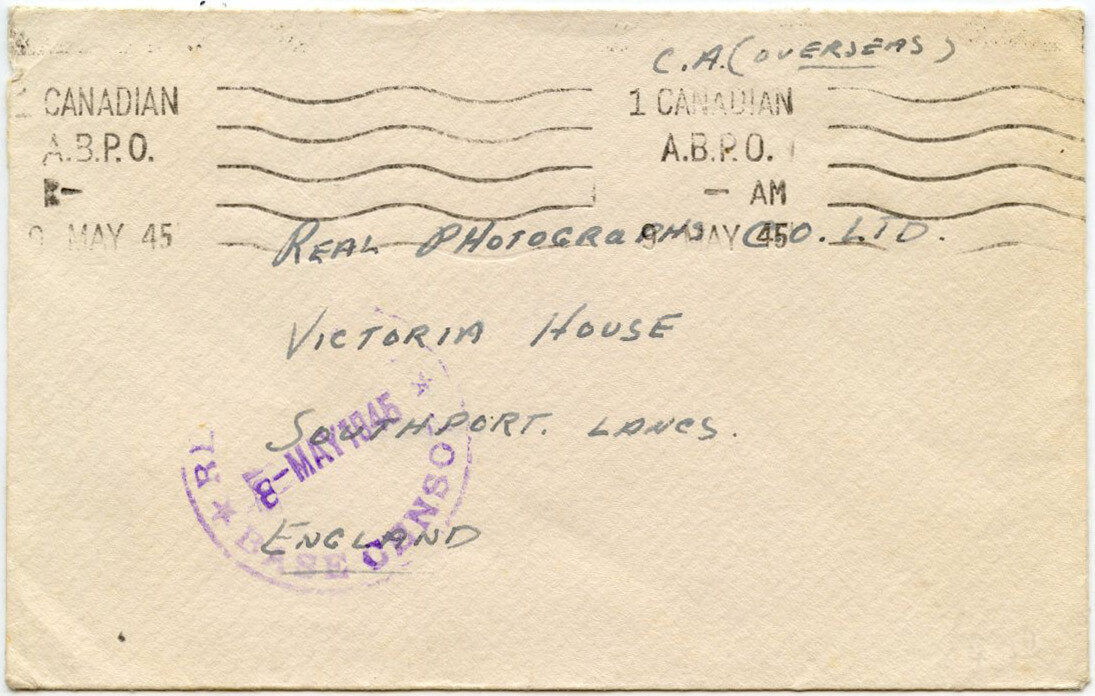 C.A. (OVERSEAS)
1 CANADIAN
A.B.P.O.
9 MAY 45
1 CANADIAN
A.B.P.O.
— AM
9 MAY 45
REAL PHOTOGRAPHS CO. LTD.
VICTORIA HOUSE
SOUTHPORT. LANCS.
ENGLAND
8—MAY 1945
★ BASE CENSO